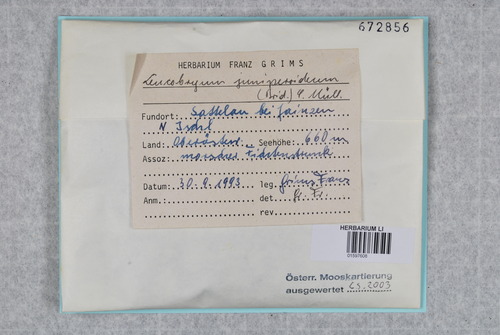 672856
HERBARIUM FRANZ GRIMS
Leucobryum juniperoideum
(Brid.) C. Müll.
Fundort: Sattelau bei Jainzen
N Ischl
Land: Oberösterr. Seehöhe: 660 m
Assoz: morscher Fichtenstrunk
Datum: 30.9.1993 leg. Grims Franz
Anm.: det. Gr. Fr.
rev.
HERBARIUM LI
Österr. Mooskartierung
ausgewertet 2003